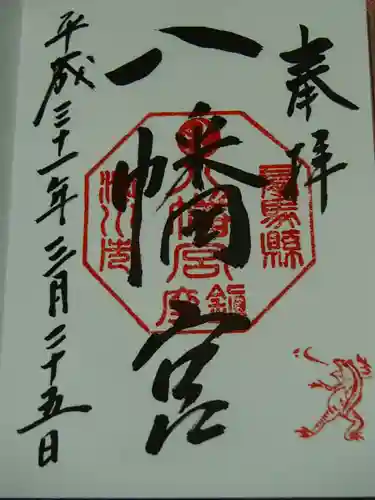 奉拝
八幡宮
平成三十一年三月二十五日
鎮座